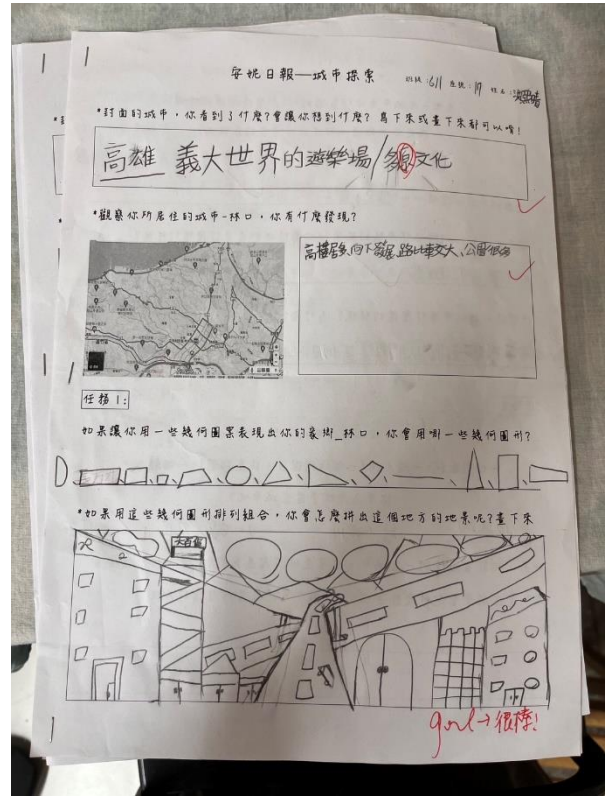 安妮日報——城市探索 班級:611 座號:17 姓名:
*封面的城市,你看到了什麼?會讓你想到什麼?寫下來或畫下來都可以唷!
高雄 義大世界的遊樂場/多 文化
*觀察你所居住的城市-林口,你有什麼發現?
高樓居多,向下發展,路比較大、公園很多
任務1:
如果讓你用一些幾何圖案表現出你的家鄉_林口,你會用哪一些幾何圖形?
*如果用這些幾何圖形排列組合,你會怎麼拼出這個地方的地景呢?畫下來
大百貨
good→很棒!